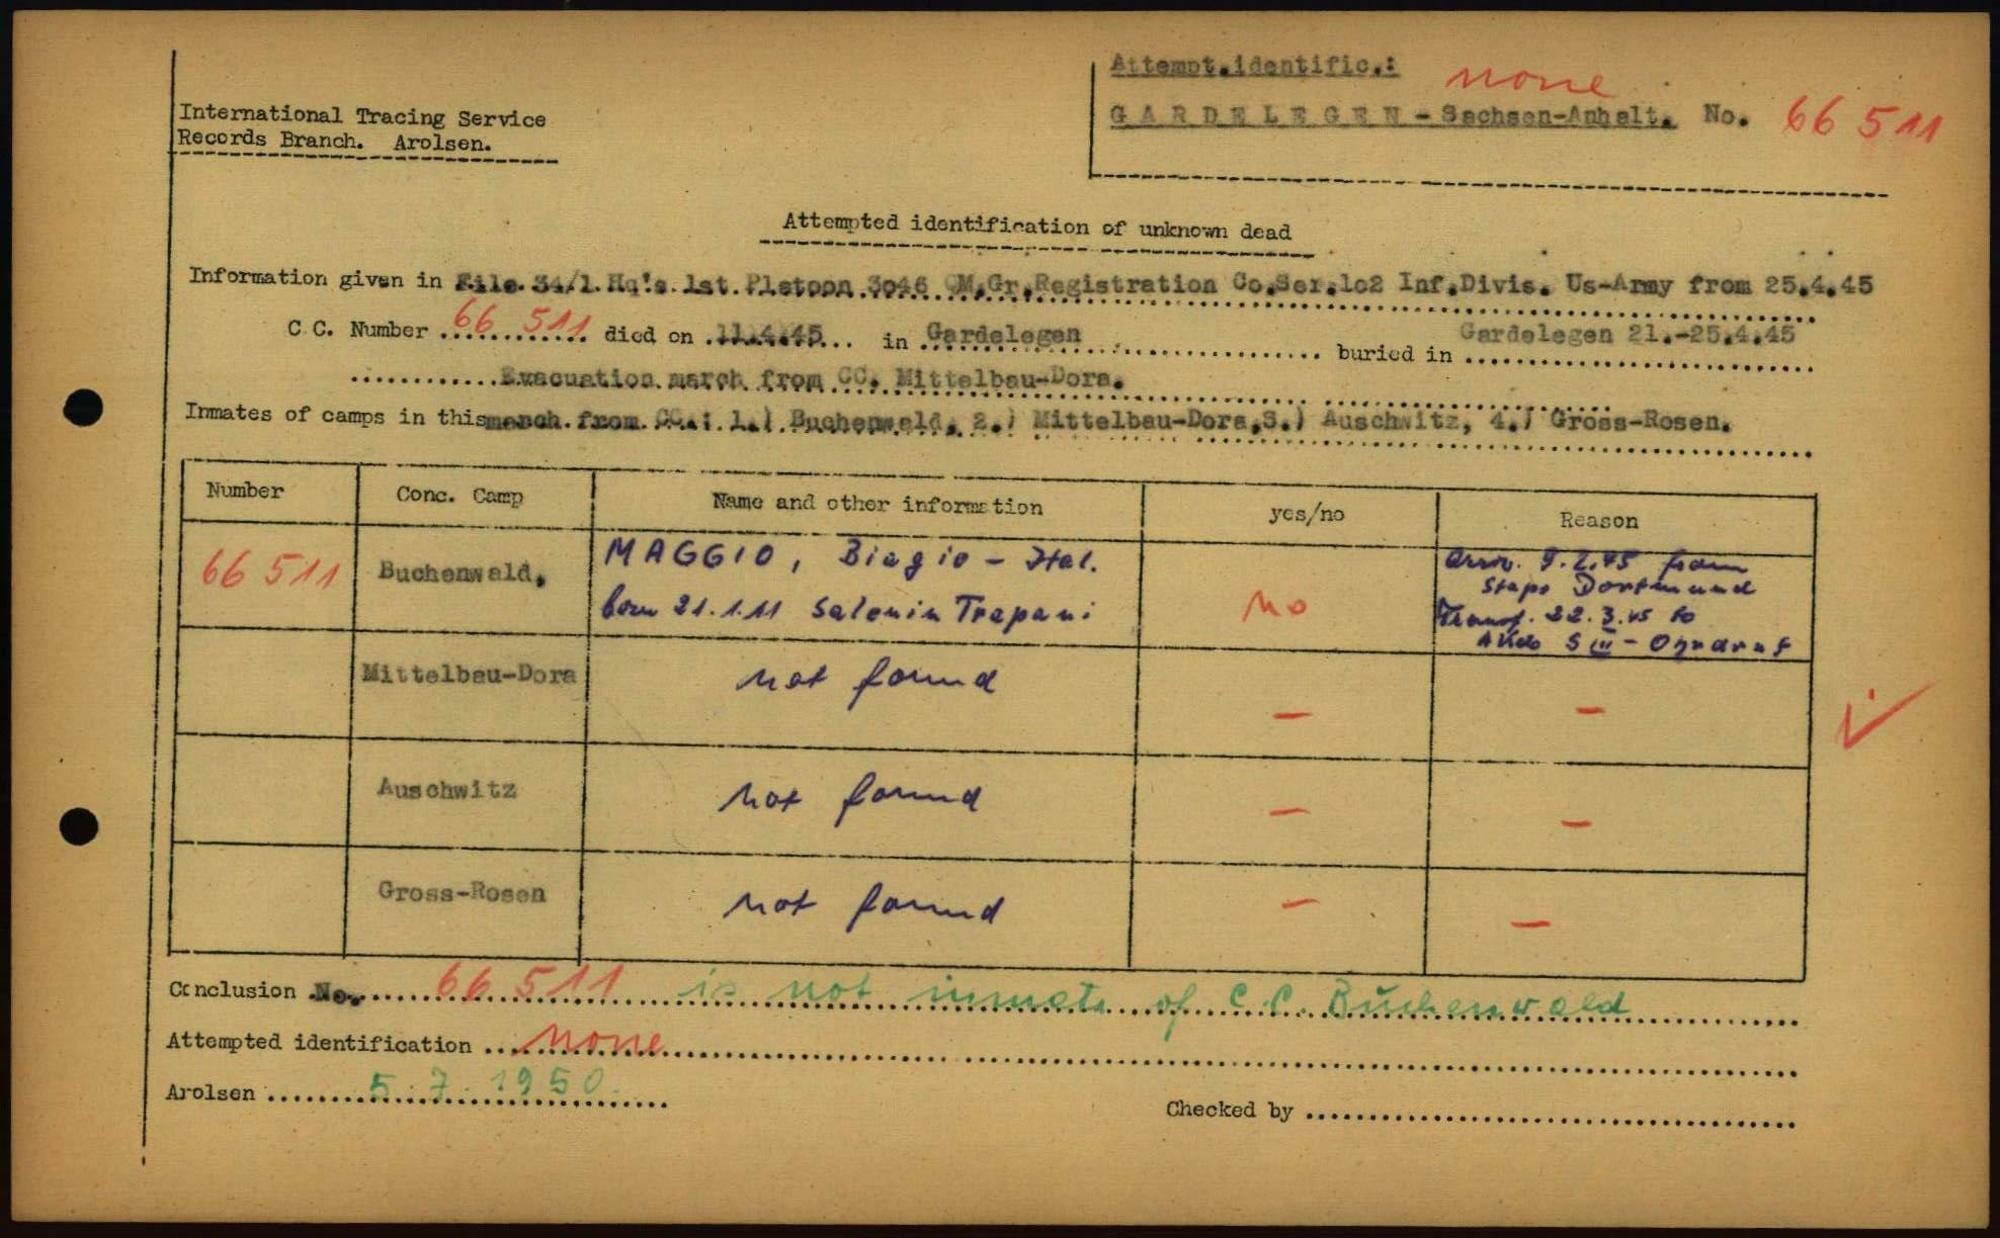 Attempt.identific.: none
International Tracing Service
Records Branch. Arolsen.
GARDELEGEN - Sachsen-Anhalt. No. 66 511
Attempted identification of unknown dead
Information given in File 34/1 Hq's 1st Pletoon 3o46 QM.Gr.Registration Co.Ser.1o2 Inf.Divis. Us-Army from 25.4.45
C C. Number 66 511 died on 11.4.45 in Gardelegen buried in Gardelegen 21.-25.4.45
Evacuation march from CC. Mittelbau-Dora.
Inmates of camps in this march from CC.: 1.) Buchenwald, 2.) Mittelbau-Dora,3.) Auschwitz, 4.) Gross-Rosen.
Number Conc. Camp Name and other information yes/no Reason
66 511 Buchenwald. MAGGIO, Biagio - Ital. born 21.1.11 Salemin Trapani no arriv. 9.2.45 from Stapo Dortmund Transf. 22.3.45 to AKdo S III - Ohrdruf
Mittelbau-Dora not found — —
Auschwitz not found — —
Gross-Rosen not found — —
Conclusion No. 66 511 is not inmate of C.C. Buchenwald
Attempted identification none
Arolsen 5.7.1950.
Checked by